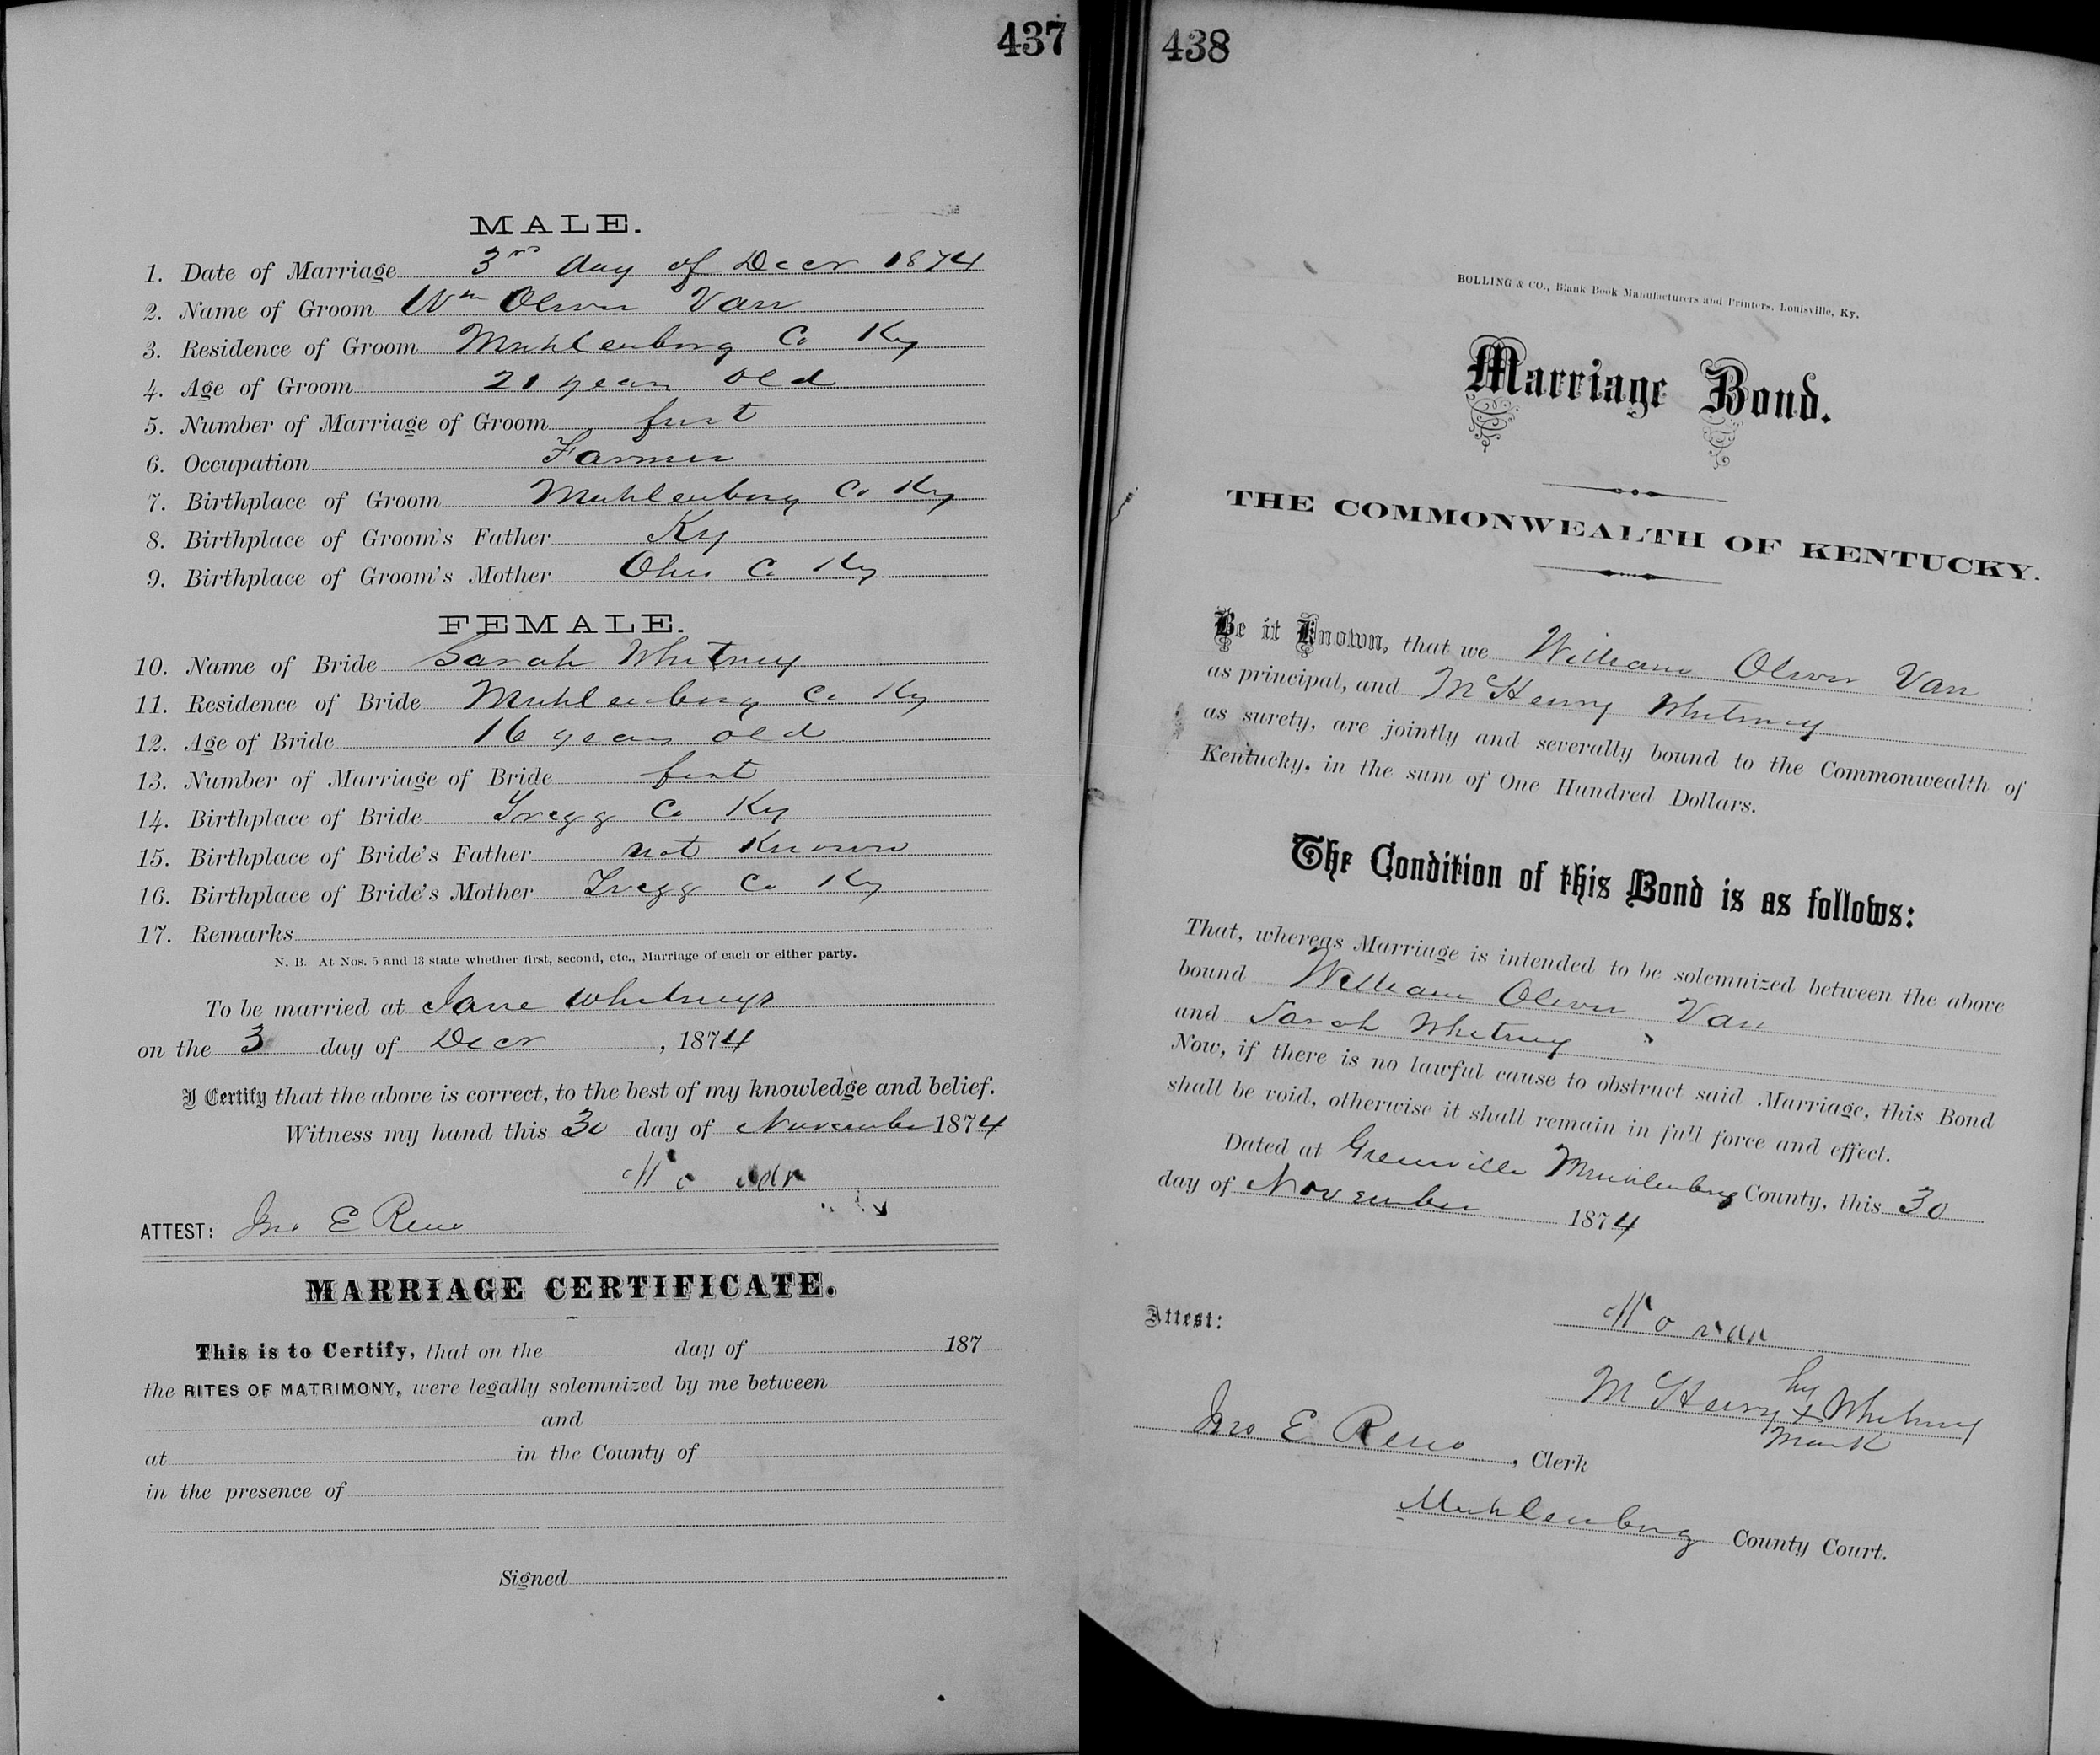 437
MALE.
1. Date of Marriage 3rd day of Decr 1874
2. Name of Groom Wm Oliver Van
3. Residence of Groom Muhlenburg Co Ky
4. Age of Groom 21 years old
5. Number of Marriage of Groom first
6. Occupation Farmer
7. Birthplace of Groom Muhlenburg Co Ky
8. Birthplace of Groom's Father Ky
9. Birthplace of Groom's Mother Ohio Co Ky
FEMALE.
10. Name of Bride Sarah Whitney
11. Residence of Bride Muhlenburg Co Ky
12. Age of Bride 16 years old
13. Number of Marriage of Bride first
14. Birthplace of Bride Tregg Co Ky
15. Birthplace of Bride's Father not Known
16. Birthplace of Bride's Mother Tregg Co Ky
17. Remarks
N. B. At Nos. 5 and 13 state whether first, second, etc., Marriage of each or either party.
To be married at Jane Whitneys
on the 3 day of Decr, 1874
I Certify that the above is correct, to the best of my knowledge and belief.
Witness my hand this 30 day of November 1874
W o van
ATTEST: Jno E Reno
MARRIAGE CERTIFICATE.
This is to Certify, that on the day of 187
the RITES OF MATRIMONY, were legally solemnized by me between
and
at in the County of
in the presence of
Signed
438
BOLLING & CO., Blank Book Manufacturers and Printers, Louisville, Ky.
Marriage Bond.
THE COMMONWEALTH OF KENTUCKY.
Be it Known, that we William Oliver Van
as principal, and McHenry Whitney
as surety, are jointly and severally bound to the Commonwealth of
Kentucky, in the sum of One Hundred Dollars.
The Condition of this Bond is as follows:
That, whereas Marriage is intended to be solemnized between the above
bound William Oliver Van
and Sarah Whitney
Now, if there is no lawful cause to obstruct said Marriage, this Bond
shall be void, otherwise it shall remain in full force and effect.
Dated at Greenville Muhlenburg County, this 30
day of November 1874
Attest:
W o van
his
McHenry x Whitney
mark
Jno E Reno, Clerk
Muhlenburg County Court.